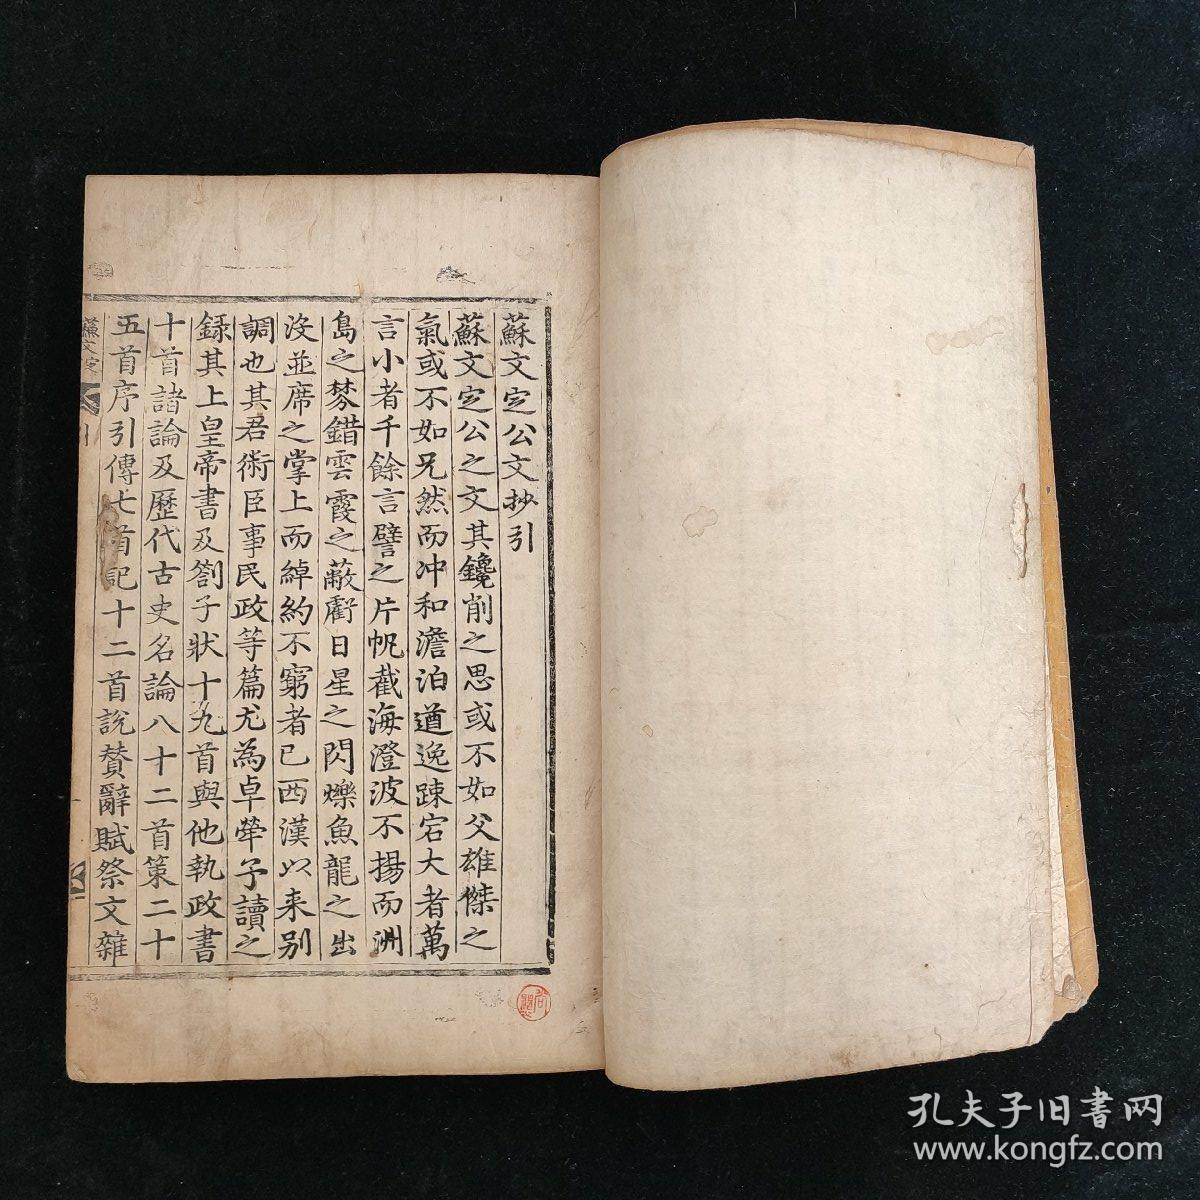 蘇文定公文抄引
蘇文定公之文其鑱削之思或不如父雄傑之
氣或不如兄然而冲和澹泊遒逸踈宕大者萬
言小者千餘言譬之片帆截海澄波不揚而洲
島之棼錯雲霞之蔽虧日星之閃爍魚龍之出
沒並席之掌上而綽約不窮者已西漢以来别
調也其君術臣事民政等篇尤為卓犖予讀之
録其上皇帝書及劄子狀十九首與他執政書
十首諸論及歷代古史名論八十二首策二十
五首序引傳七首記十二首說贊辭賦祭文雜
蘇文定
引
孔夫子旧書网
www.kongfz.com